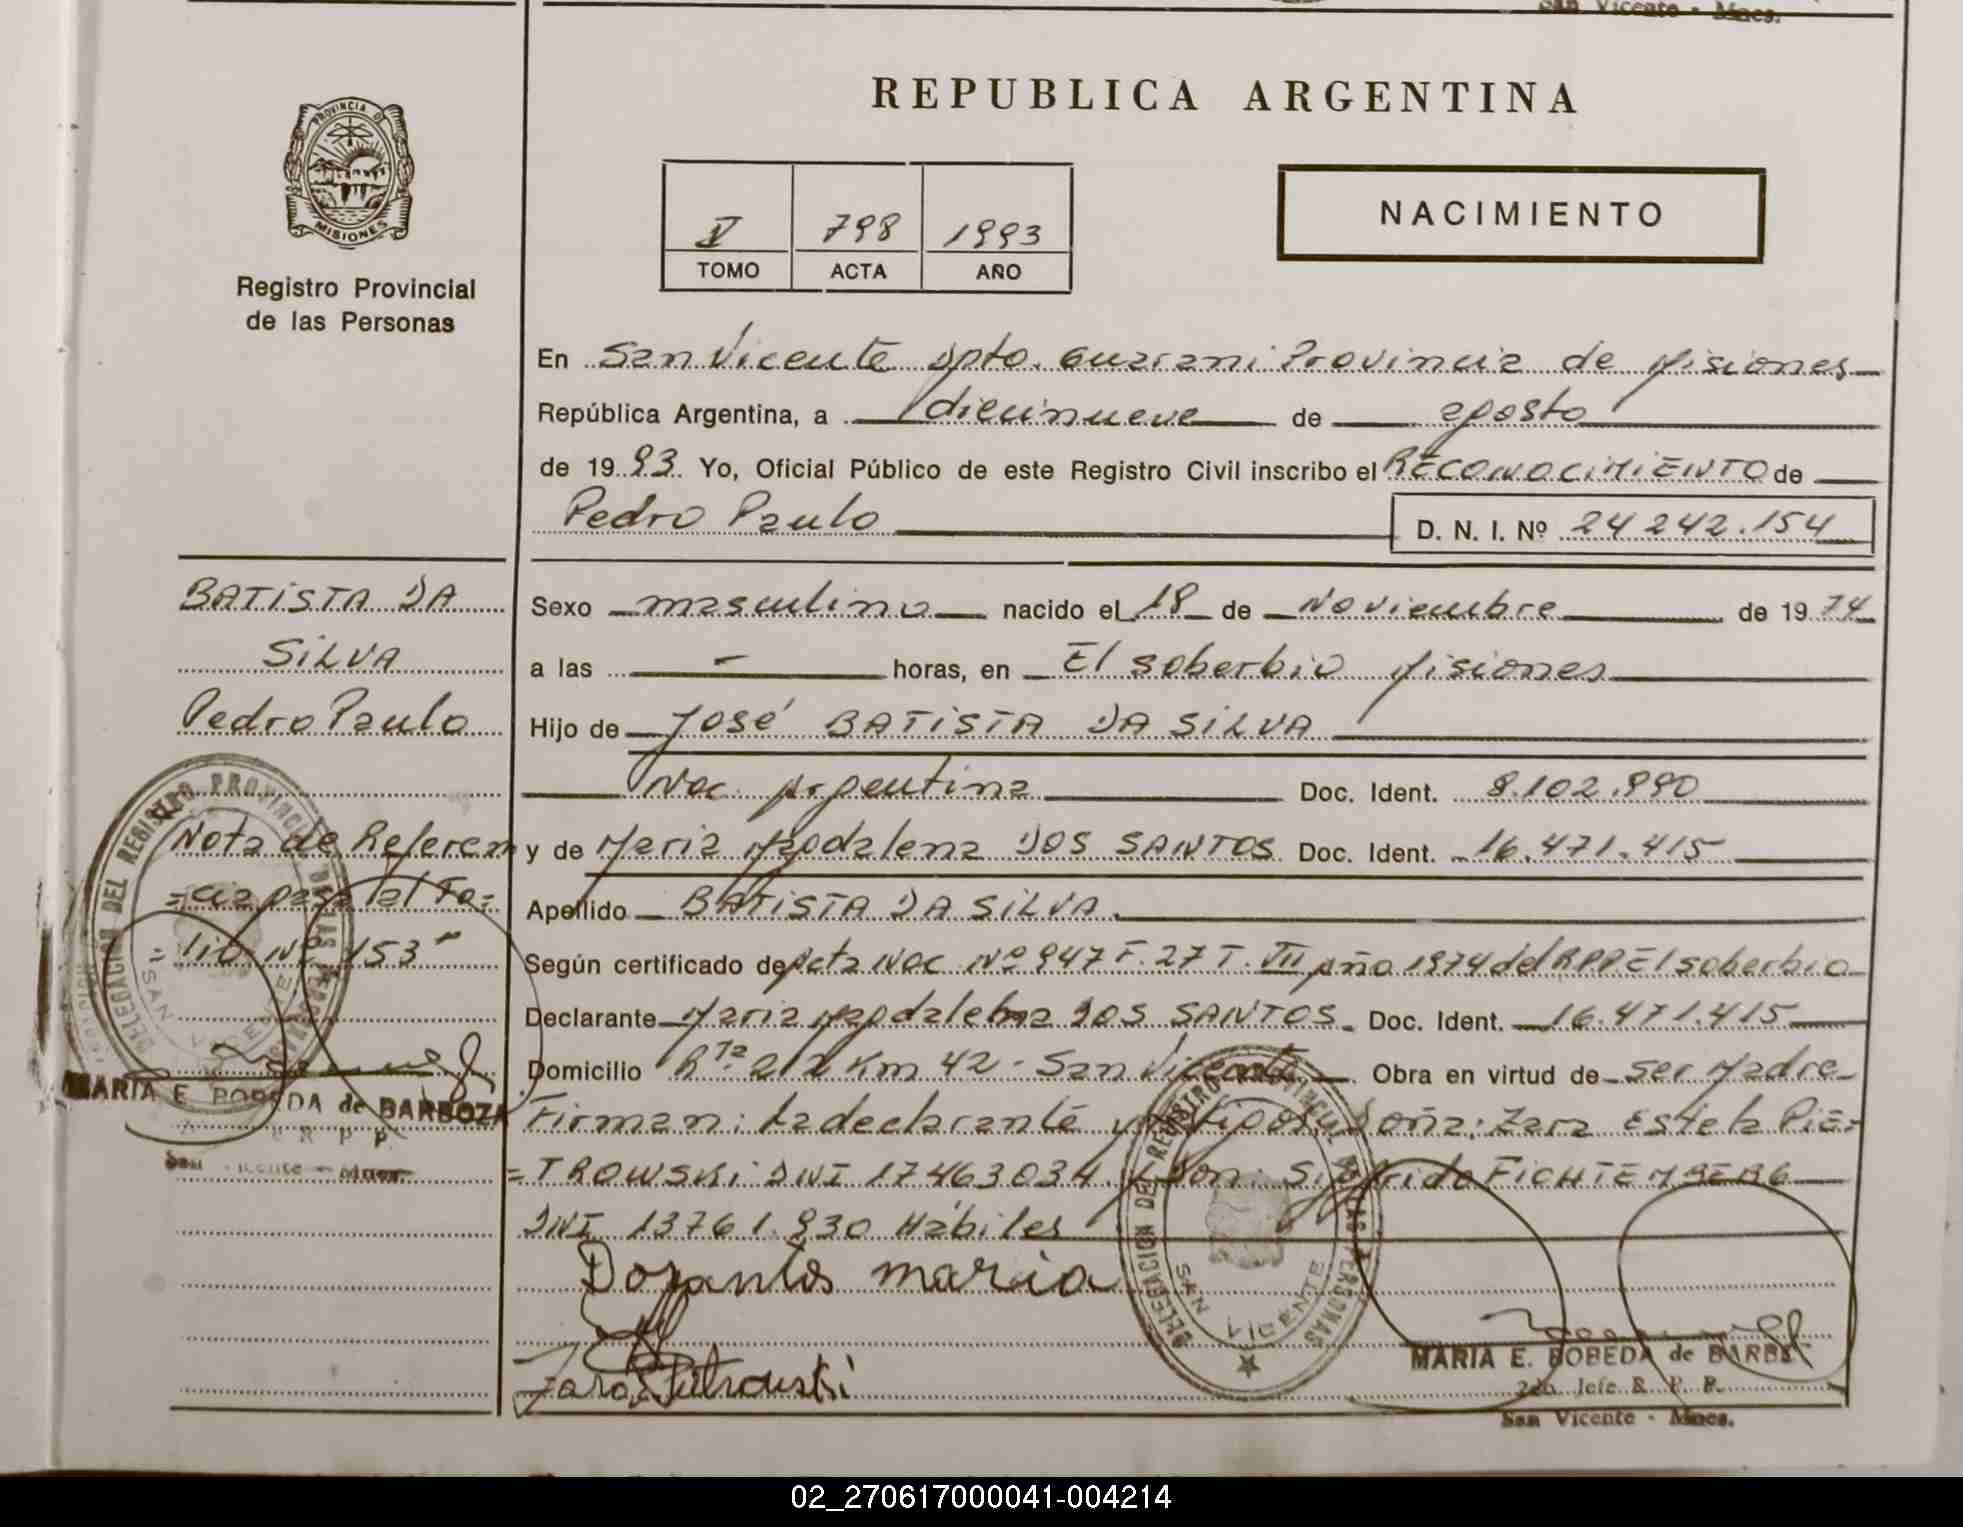 San Vicente - Mnes.
REPUBLICA ARGENTINA
PROVINCIA DE
MISIONES
Registro Provincial
de las Personas
V 798 1993
TOMO ACTA AÑO
NACIMIENTO
En San Vicente Dpto. Guarani Provincia de Misiones
República Argentina, a diecinueve de agosto
de 1993 Yo, Oficial Público de este Registro Civil inscribo el RECONOCIMIENTO de
Pedro Paulo D. N. I. Nº 24242.154
BATISTA DA
SILVA
Pedro Paulo
Nota de Referen
=cia pasa al Fo=
lio Nº 153"
MARIA E. BOBEDA de BARBOZA
R P P
San Vicente - Mnes.
Sexo masculino nacido el 18 de Noviembre de 1974
a las - horas, en El soberbio Misiones
Hijo de José BATISTA DA SILVA
Nac. Argentina Doc. Ident. 8.102.990
y de Maria Magdalena DOS SANTOS Doc. Ident. 16.471.415
Apellido BATISTA DA SILVA.
Según certificado de Acta Nac Nº 947 F. 27 T. VII año 1974 del R.P.P El soberbio
Declarante Maria Magdalena DOS SANTOS. Doc. Ident. 16.471.415
Domicilio Rta 212 Km 42 - San Vicente Obra en virtud de ser Madre
Firman: La declarante y testigos: Doña: Zara Estela PIE=
=TROWSKI DNI 17463034 y Don: Sigfrido FICHTEMBERG
DNI 13761.930 Hábiles
Dosantos maria
Zara E Pietrowski
DELEGACION DEL REGISTRO PROVINCIAL DE LAS PERSONAS
SAN VICENTE
MARIA E. BOBEDA de BARBOZA
2do Jefe R. P. P.
San Vicente - Mnes.
02_270617000041-004214